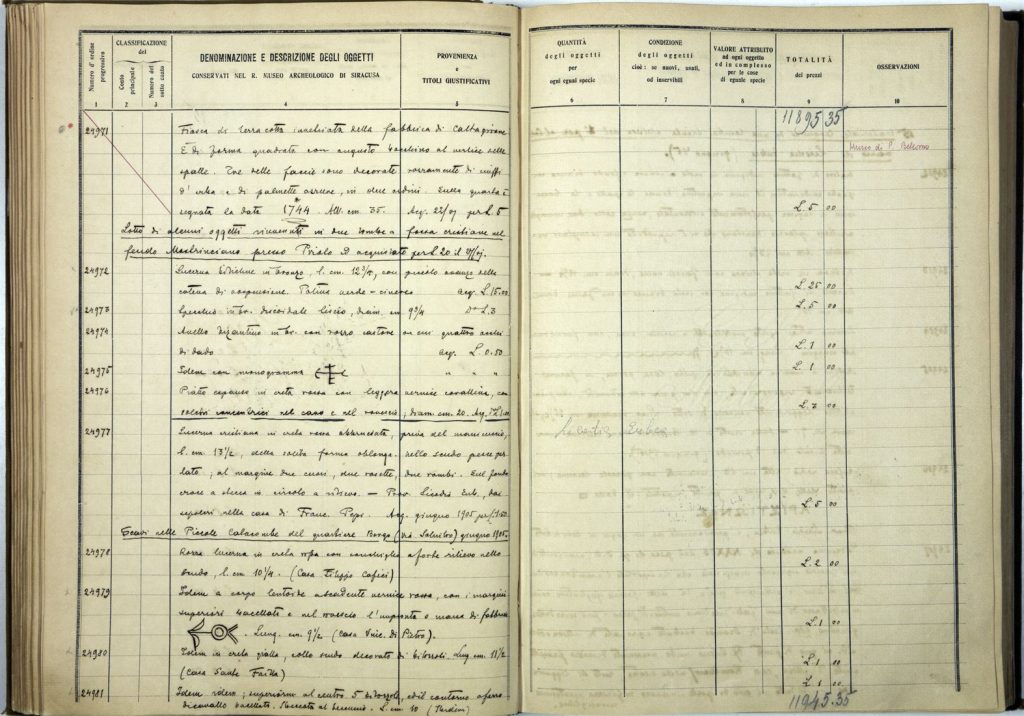 Numero d' ordine progressivo
CLASSIFICAZIONE del
Conto principale
Numero del sotto conto
DENOMINAZIONE E DESCRIZIONE DEGLI OGGETTI
CONSERVATI NEL R. MUSEO ARCHEOLOGICO DI SIRACUSA
PROVENIENZA
e
TITOLI GIUSTIFICATIVI
QUANTITÀ
degli oggetti
per
ogni egual specie
CONDIZIONE
degli oggetti
cioè: se nuovi, usati,
od inservibili
VALORE ATTRIBUITO
ad ogni oggetto
ed in complesso
per le cose
di eguale specie
TOTALITÀ
dei prezzi
OSSERVAZIONI
1 2 3 4 5 6 7 8 9 10
11895.35
24971 Fiasca di terra cotta invetriata della fabbrica di Caltagirone
Museo di P. Bellomo
È di forma quadrata con angusto bocchino al vertice delle
spalle. Tre delle faccie sono decorate rozzamente di ciuffi
d' erba e di palmette azzurre, in due ordini. Sulla quarta è
segnata la data 1744. Alt. cm. 35. Acq. per L. 5
L. 5 00
Lotto di alcuni oggetti rinvenuti in due tombe a fossa cristiane nel
feudo presso Priolo acquistato per L. 20 il
24972 Lucerna in bronzo, l. cm. 12 con piccolo avanzo della
catena di sospensione. Patina verde - cinerea acq. L. 15.00
L. 25 00
24973 Specchio in br. discoidale liscio, diam. cm 9 3/4 L. 3
L. 5 00
24974 Anello bizantino in br. con rozzo castone su cui quattro occhi
di dado acq. L. 0.50
L. 1 00
24975 Idem con monogramma " " "
L. 1 00
24976 Piatto espanso in creta rossa con leggera vernice corallina, con
solchi concentrici nel cavo e nel rovescio, diam. cm. 20. Acq.
L. 3 00
24977 Lucerna cristiana in creta rossa abbruciata, priva del manubrio,
l. cm. 13 1/2, della solita forma oblonga. nello scudo pesce per
lato; al margine due cuori, due rosette, due rombi. Sul fondo
croce a in circolo a rilievo. — Prov. Licodia Eub., dai
sepolcri nella casa di Franc. Pepi. Acq. giugno 1905 per
L. 5 00
Licodia Eubea
Scavi nelle Piccole Catacombe del quartiere Borgo (Via ) giugno 1905.
24978 Rozza lucerna in creta con conchiglia a forte rilievo nello
scudo, l. cm. 10 1/4. (Casa Filippo Cafici)
L. 2 00
24979 Idem a corpo lentoide a scadente vernice rossa, con i margini
superiori baccellati e nel rovescio l'impronta o marca di fabbrica
. Lung. cm. 9 1/2 (Casa Vinc. di Pietro).
L. 1 00
24980 Idem in creta gialla, collo scudo decorato di bitorzoli. Lung. cm. 11 1/2
(Casa Sante )
L. 1 00
24981 Idem idem; superiorm. al centro 5 bitorzoli, ed il contorno a ferro
L. 1 00
di cavallo baccellato. L. cm. 10
11945.35